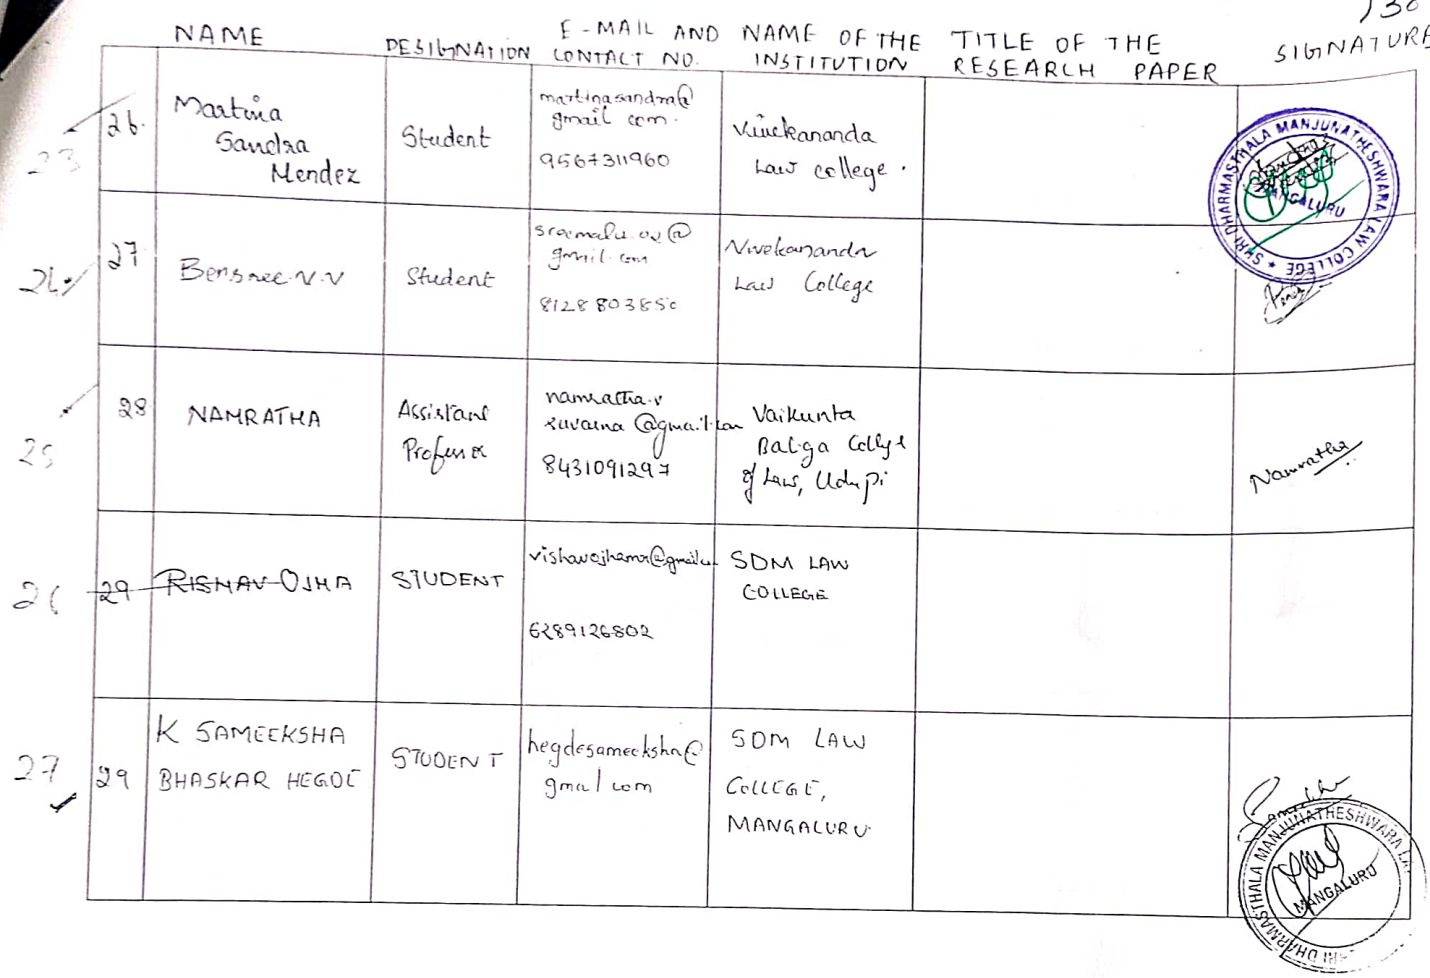 130
NAME
DESIGNATION
E-MAIL AND
CONTACT NO.
NAME OF THE
INSTITUTION
TITLE OF THE
RESEARCH PAPER
SIGNATURE
23
26.
Martina
Sandra
Mendez
Student
martinasandra@
gmail com.
9567311960
Vivekananda
Law college.
SHRI DHARMASTHALA MANJUNATHESHWARA LAW COLLEGE *
MANGALURU
24.
27
V.V
Student
@
gmail.com
Vivekananda
Law College
25
28
NAMRATHA
Assistant
Professor
namratha.v
suvarna@gmail.com
8431091297
Vaikunta
Baliga College
of Law, Udupi
Namratha
26
29
RISHAV OJHA
STUDENT
6289126802
SDM LAW
COLLEGE
27
29
K SAMEEKSHA
BHASKAR HEGDE
STUDENT
hegdesameeksha@
gmail com
SDM LAW
COLLEGE,
MANGALURU
SHRI DHARMASTHALA MANJUNATHESHWARA
MANGALURU